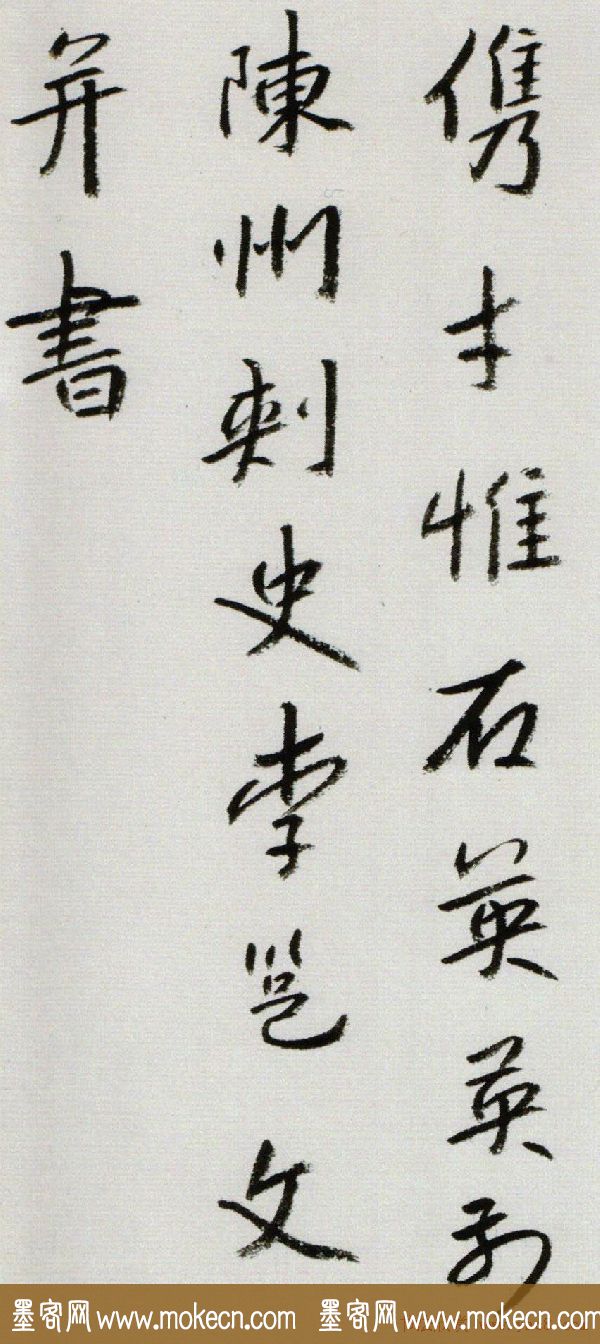 㑺才惟石英英
陳州刺史李邕文
并書
墨客网 www.mokecn.com 墨客网 www.mokecn.com